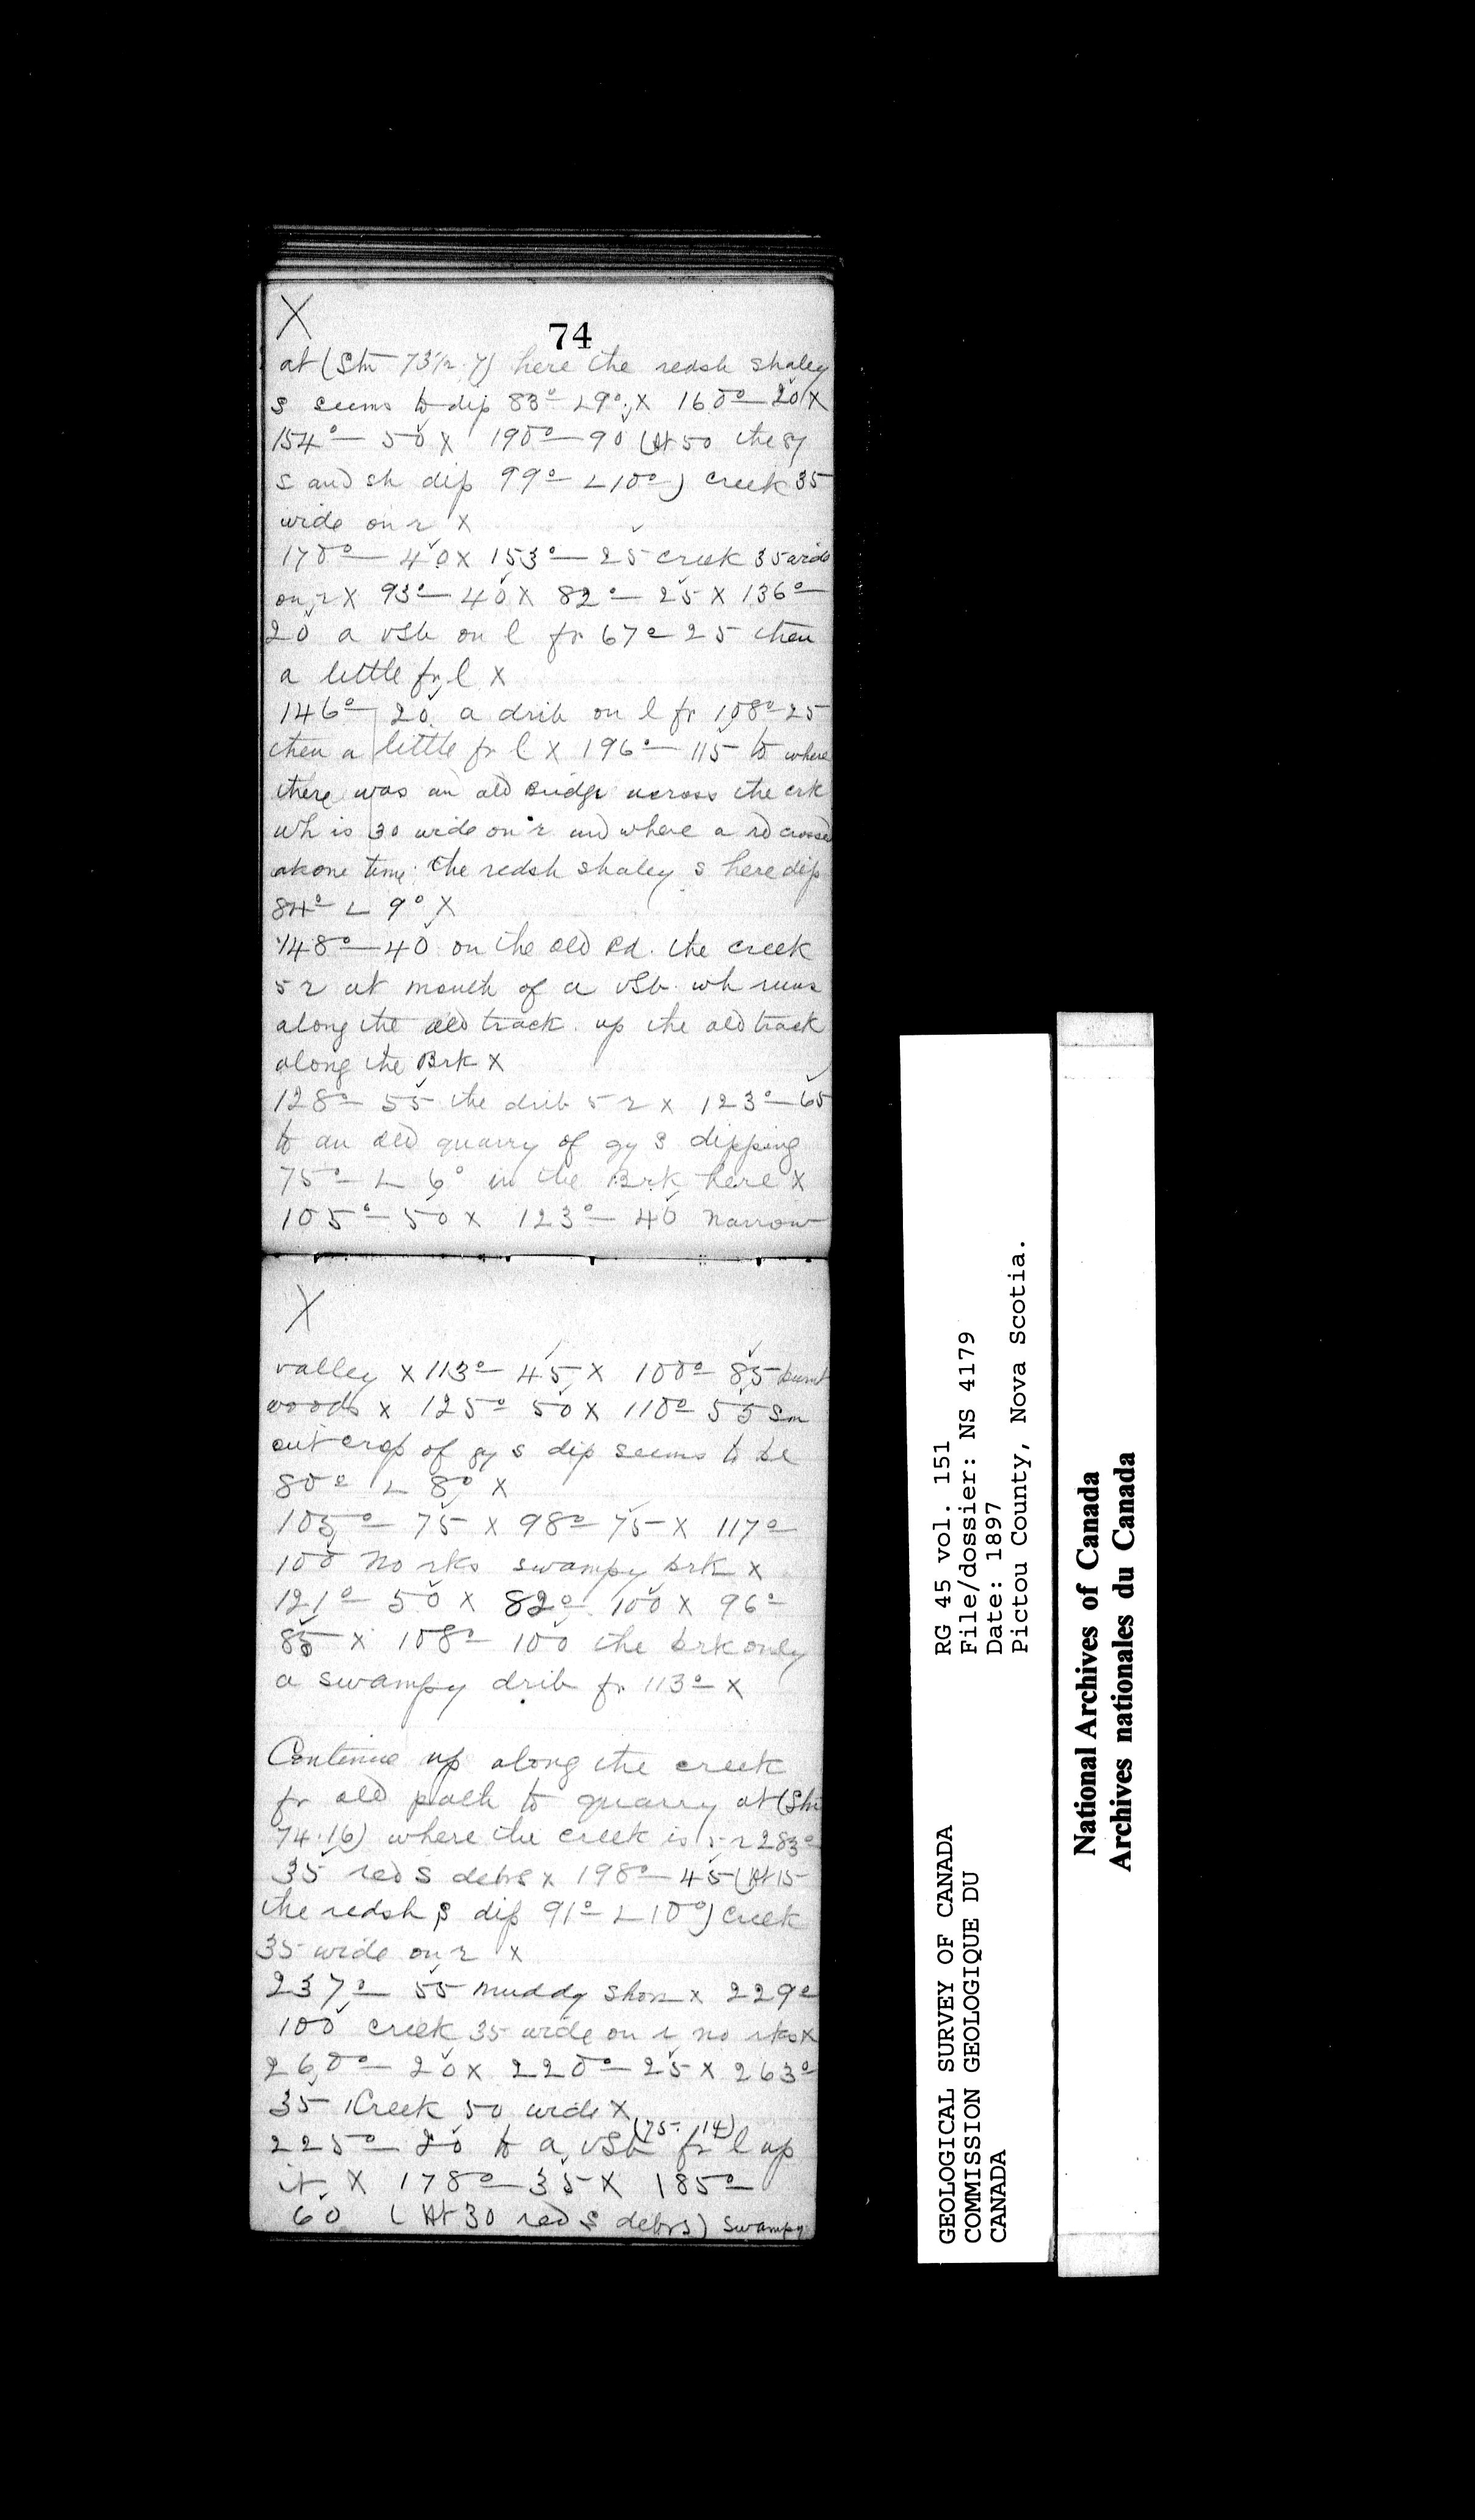 X
74
at (Stn 73 1/2.7) here the redsh shaley
s seems to dip 83° ∟9° X 160°—20 X
154°—50 X 190°—90 (At 50 the gy
s and sh dip 99° ∟10°) creek 35
wide on r X
170°—40 X 153°—25 creek 35 wide
on r X 93°—40 X 82°—25 X 136°—
20 a vSb on l fr 67° 25 then
a little fr l X
146°—20 a drib on l fr 108° 25
then a little fr l X 196°—115 to where
there was an old Bridge across the crk
wh is 30 wide on r and where a rd crossed
at one time. The redsh shaley s here dip
84° ∟ 9° X
148°—40 on the old Rd. the creek
5 r at mouth of a vSb. wh runs
along the old track. up the old track
along the Brk X
128°—55 the drib 5 r X 123°—65
to an old quarry of gy s dipping
75° ∟ 6° in the Brk here X
105°—50 X 123°—40 narrow
X
valley X 113°—45 X 100°—85 burnt
woods X 125° 50 X 110° 55 Sm
out crop of gy s dip seems to be
80° ∟ 8° X
105°—75 X 98°—75 X 117°
100 no rks swampy brk X
121°—50 X 82° 100 X 96°
85 X 108°—100 the brk only
a swampy drib fr 113° X
Continue up along the creek
fr old path to quarry at (Stn
74.16) where the creek is 5 r 283°
35 red s debrs X 198°—45 (At 15
the redsh s dip 91° ∟10°) creek
35 wide on r X
237°—55 muddy shore X 229°
100 creek 35 wide on r no rks X
260°—20 X 220°—25 X 263°
35 Creek 50 wide X
225°—20 to a vSb (75.14) fr l up
it X 178°—35 X 185°—
60 (At 30 red s debrs) swampy
GEOLOGICAL SURVEY OF CANADA
COMMISSION GEOLOGIQUE DU
CANADA
RG 45 vol. 151
File/dossier: NS 4179
Date: 1897
Pictou County, Nova Scotia.
National Archives of Canada
Archives nationales du Canada